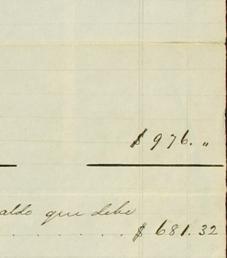 $ 976. "
aldo que debe
. . . . . . . $ 681.32